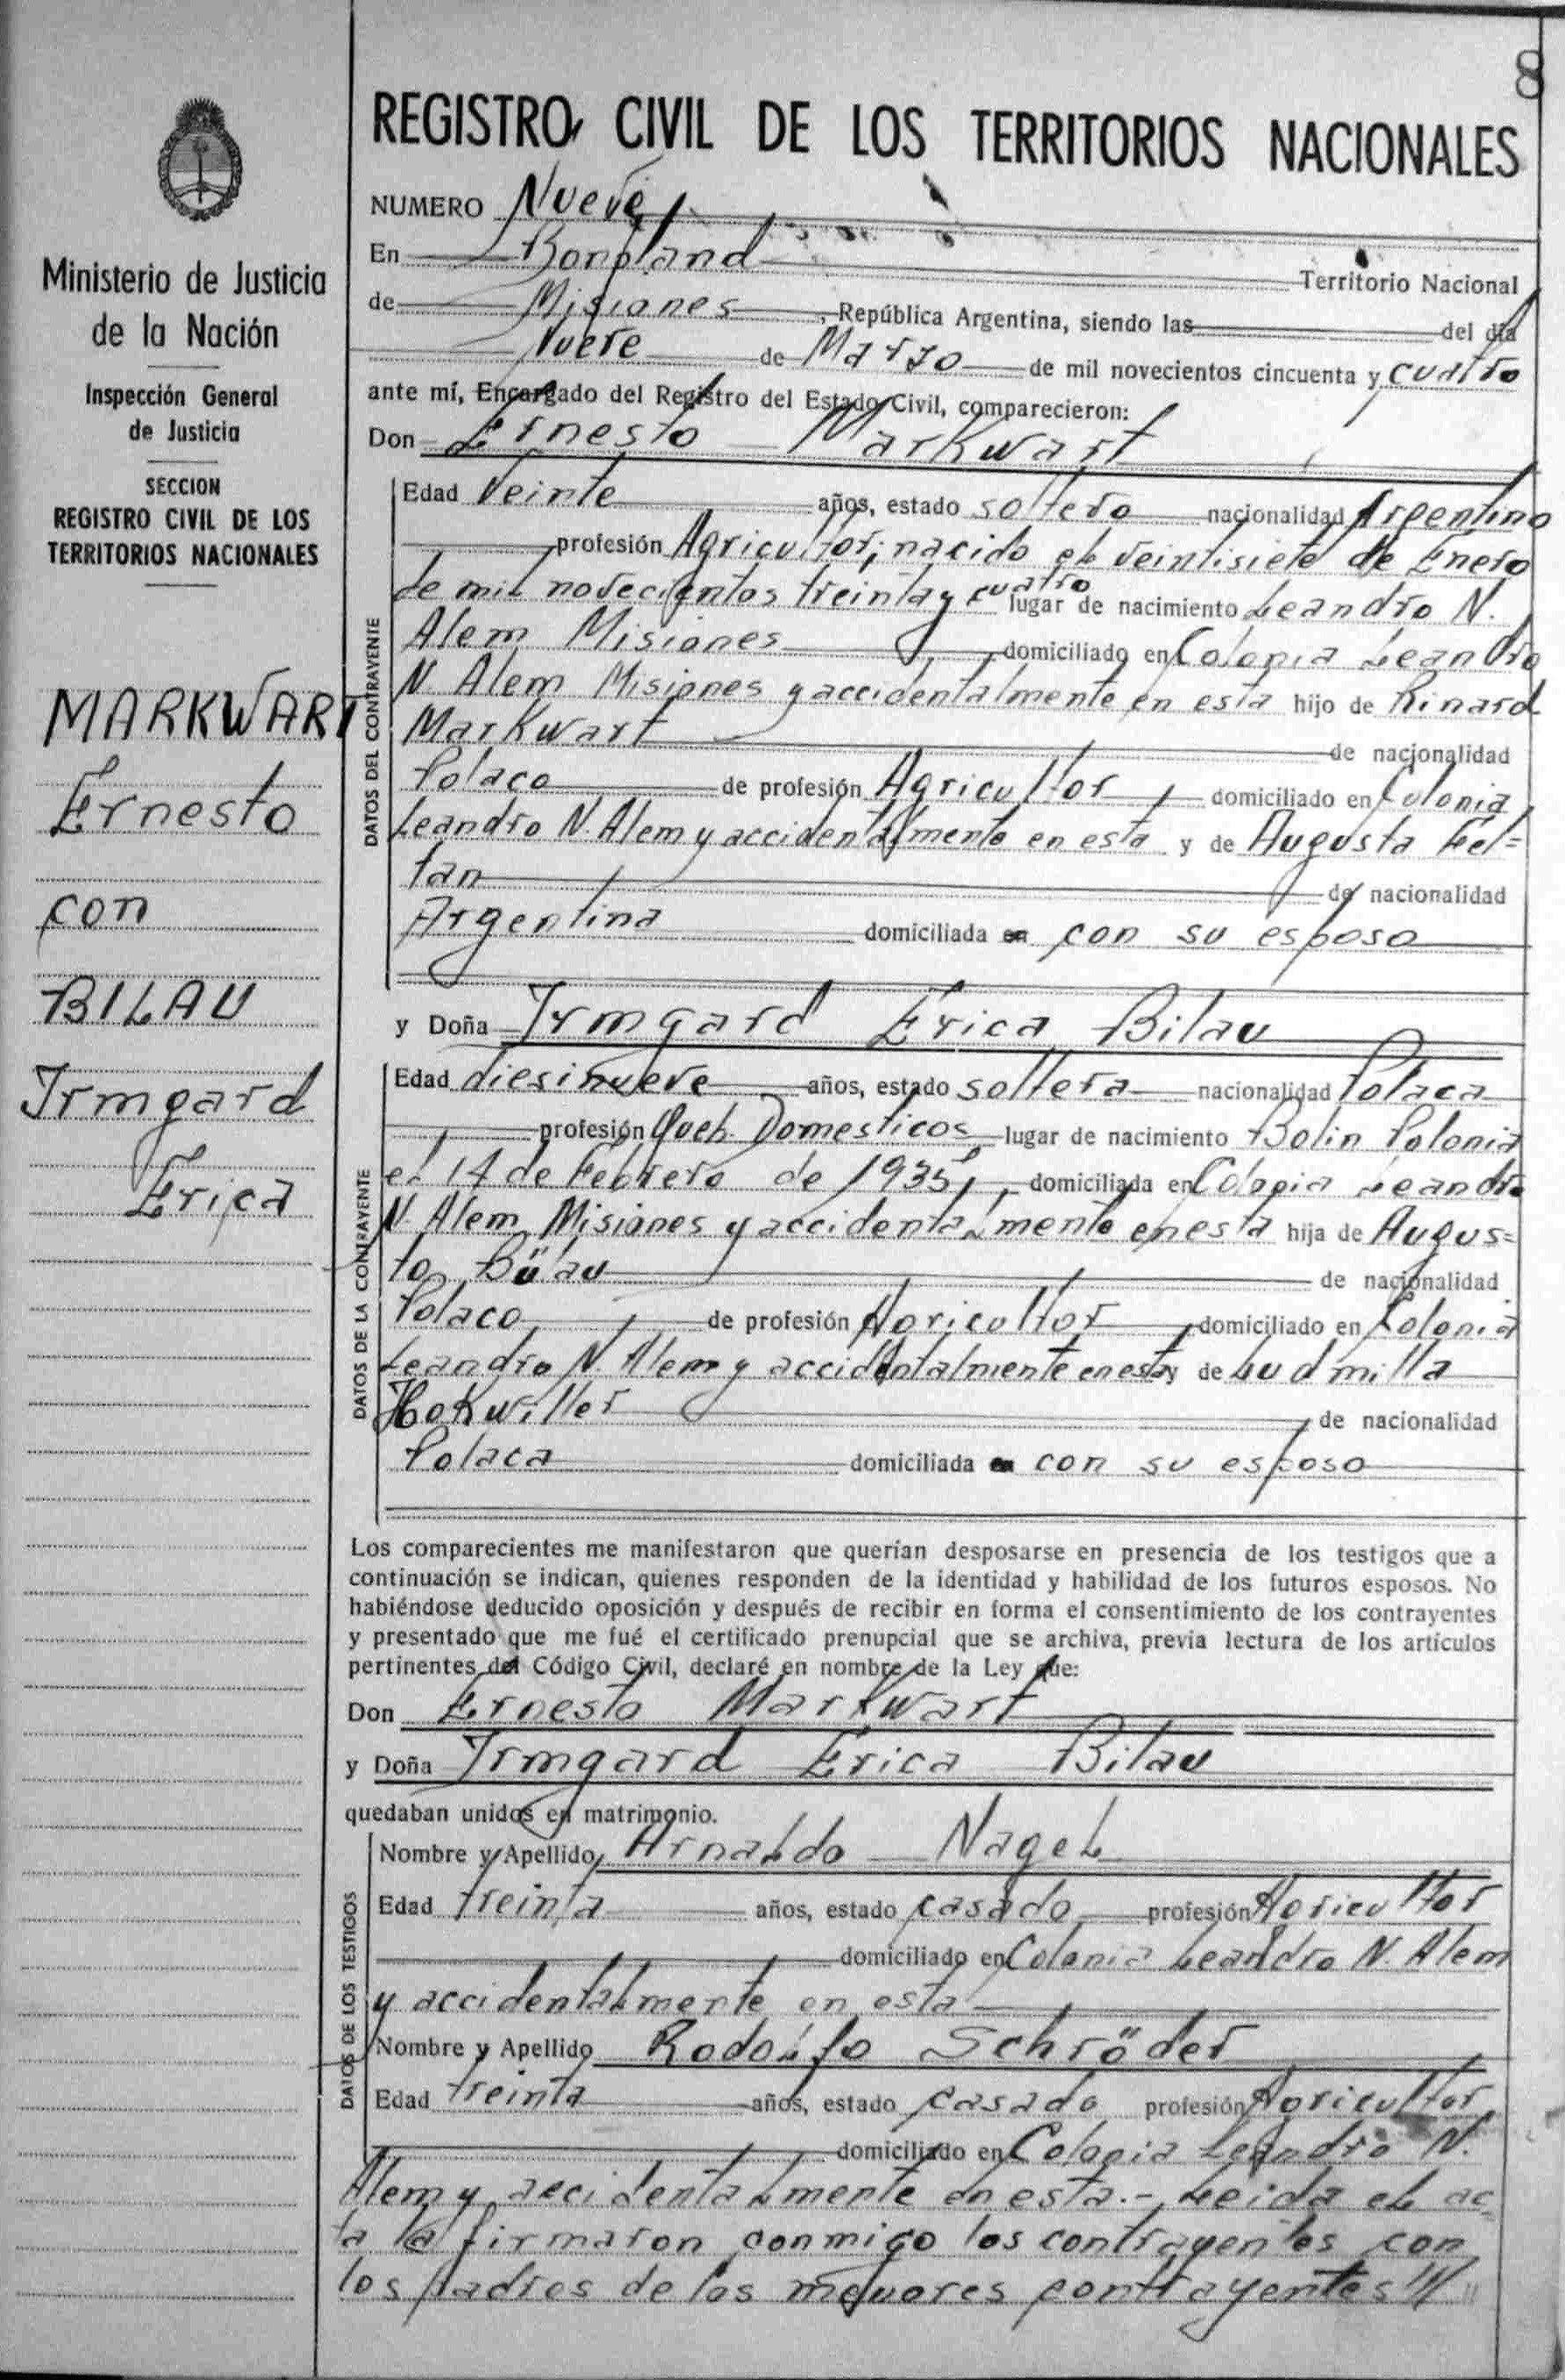 8
REGISTRO CIVIL DE LOS TERRITORIOS NACIONALES
Ministerio de Justicia
de la Nación
Inspección General
de Justicia
SECCION
REGISTRO CIVIL DE LOS
TERRITORIOS NACIONALES
MARKWART
Ernesto
con
BILAU
Irmgard
Erica
NUMERO Nueve
En Bonpland Territorio Nacional
de Misiones, República Argentina, siendo las del día
Nueve de Marzo de mil novecientos cincuenta y cuatro
ante mí, Encargado del Registro del Estado Civil, comparecieron:
Don Ernesto Markwart
DATOS DEL CONTRAYENTE
Edad Veinte años, estado soltero nacionalidad Argentino
profesión Agricultor, nacido el veintisiete de Enero
de mil novecientos treinta y cuatro lugar de nacimiento Leandro N.
Alem Misiones domiciliado en Colonia Leandro
N. Alem Misiones y accidentalmente en esta hijo de Rinard
Markwart de nacionalidad
Polaco de profesión Agricultor, domiciliado en Colonia
Leandro N. Alem y accidentalmente en esta y de Augusta Fel=
tan de nacionalidad
Argentina domiciliada en con su esposo
y Doña Irmgard Erica Bilau
DATOS DE LA CONTRAYENTE
Edad diesinueve años, estado soltera nacionalidad Polaca
profesión Queh. Domesticos, lugar de nacimiento Bolin Polonia
el 14 de Febrero de 1935, domiciliada en Colonia Leandro
N. Alem Misiones y accidentalmente en esta hija de Augus=
to Bülau de nacionalidad
Polaco, de profesión Agricultor domiciliado en Colonia
Leandro N. Alem y accidentalmente en esta y de Ludmilla
Hokwiller de nacionalidad
Polaca domiciliada en con su esposo
Los comparecientes me manifestaron que querían desposarse en presencia de los testigos que a
continuación se indican, quienes responden de la identidad y habilidad de los futuros esposos. No
habiéndose deducido oposición y después de recibir en forma el consentimiento de los contrayentes
y presentado que me fué el certificado prenupcial que se archiva, previa lectura de los artículos
pertinentes del Código Civil, declaré en nombre de la Ley que:
Don Ernesto Markwart
y Doña Irmgard Erica Bilau
quedaban unidos en matrimonio.
DATOS DE LOS TESTIGOS
Nombre y Apellido Arnaldo Nagel
Edad treinta años, estado casado profesión Agricultor
domiciliado en Colonia Leandro N. Alem
y accidentalmente en esta
Nombre y Apellido Rodolfo Schröder
Edad treinta años, estado casado profesión Agricultor
domiciliado en Colonia Leandro N.
Alem y accidentalmente en esta.- Leida el ac
ta la firmaron conmigo los contrayentes con
los padres de los menores contrayentes